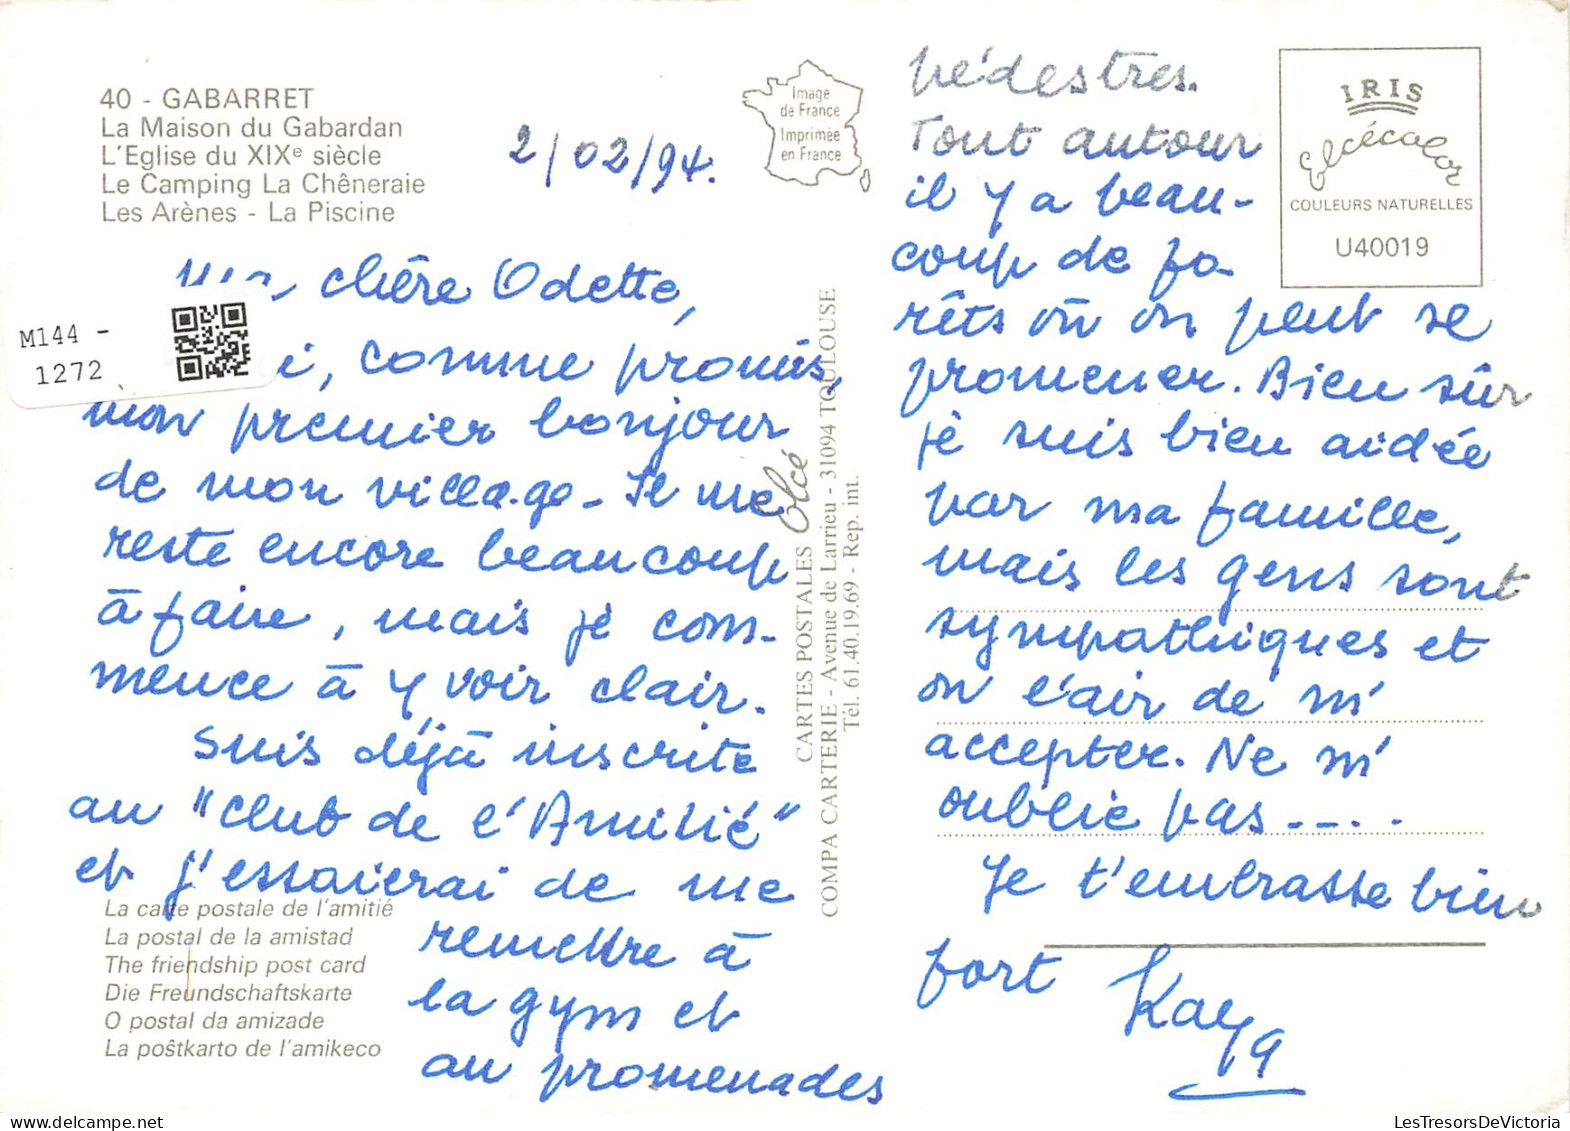 40 - GABARRET
La Maison du Gabardan
L'Eglise du XIXe siècle
Le Camping La Chêneraie
Les Arènes - La Piscine
2/02/94.
Image
de France
Imprimée
en France
IRIS
COULEURS NATURELLES
U40019
M144 -
1272
chère Odette,
comme promis,
mon premier bonjour
de mon village. Il me
reste encore beaucoup
à faire, mais je com-
mence à y voir clair.
Suis déjà inscrite
au "club de l'Amitié"
et j'essaierai de me
remettre à
la gym et
au promenades
La carte postale de l'amitié
La postal de la amistad
The friendship post card
Die Freundschaftskarte
O postal da amizade
La poŝtkarto de l'amikeco
CARTES POSTALES Elcé
COMPA CARTERIE - Avenue de Larrieu - 31094 TOULOUSE
Tél. 61.40.19.69 - Rep. int.
pédestres.
Tout autour
il y a beau-
coup de fo-
rêts où on peut se
promener. Bien sûr
je suis bien aidée
par ma famille,
mais les gens sont
sympathiques et
on l'air de m'
accepter. Ne m'
oublie pas....
Je t'embrasse bien
fort
LesTresorsDeVictoria.com